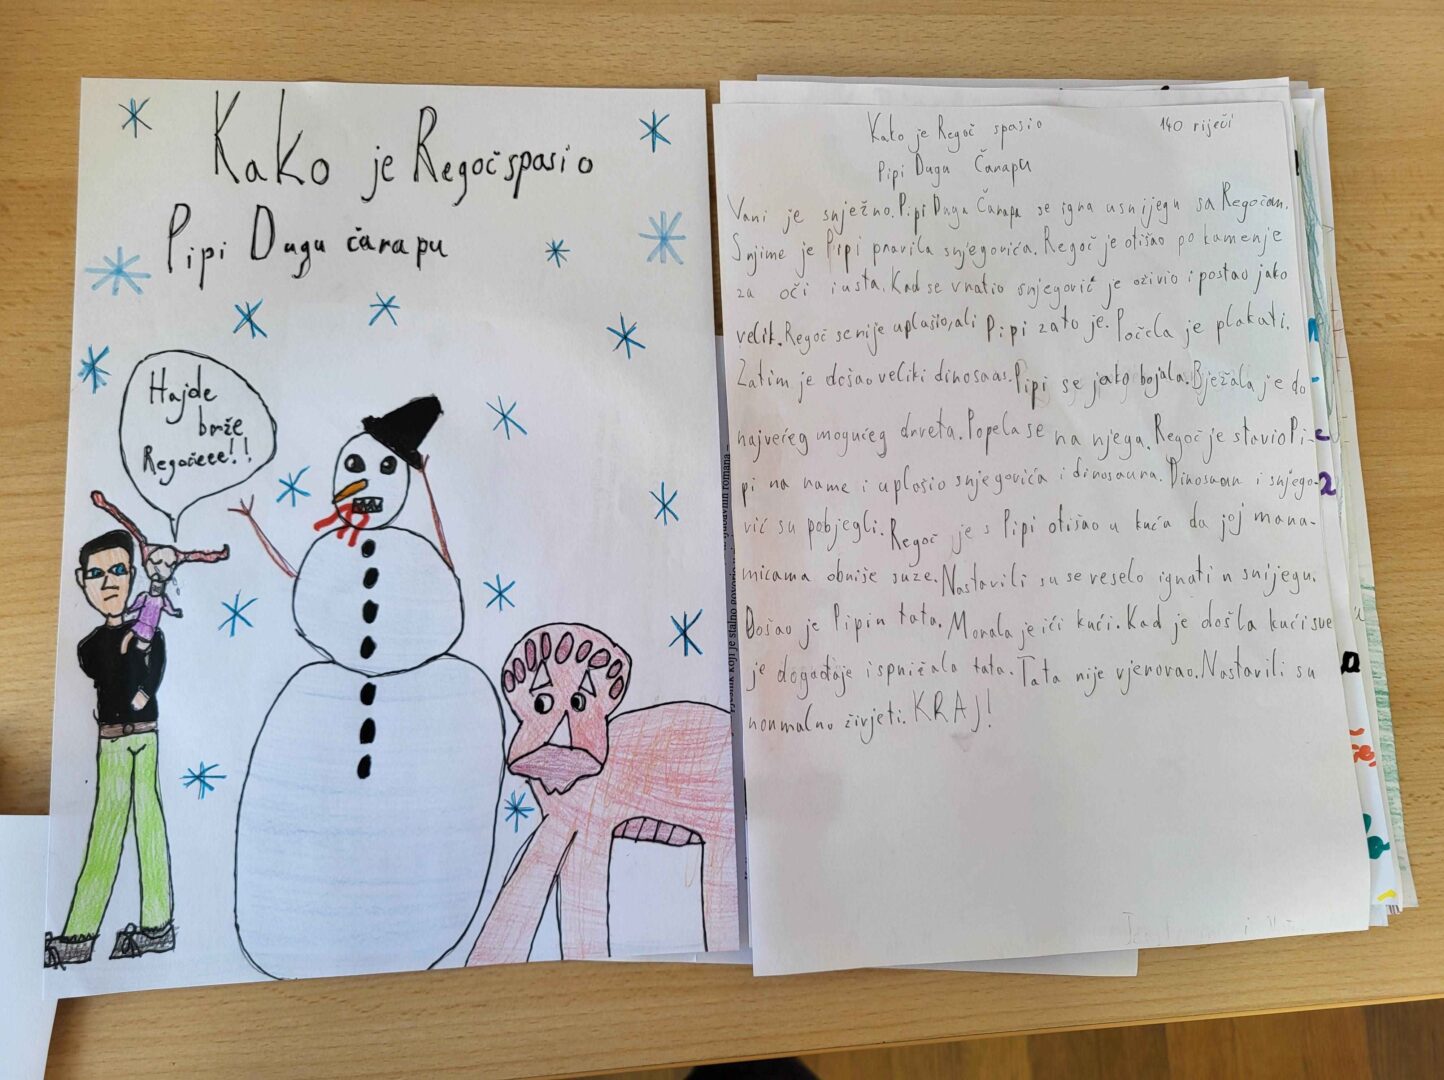 Kako je Regoč spasio
Pipi Dugu čarapu
Hajde
brže
Regočeee!!
Kako je Regoč spasio
140 riječi
Pipi Dugu Čarapu
Vani je snježno. Pipi Duga Čarapa se igra u snijegu sa Regočem.
Snjime je Pipi pravila snjegovića. Regoč je otišao po kamenje
za oči i usta. Kad se vratio snjegović je oživio i postao jako
velik. Regoč se nije uplašio, ali Pipi zato je. Počela je plakati.
Zatim je došao veliki dinosaas. Pipi se jako bojala. Bježala je do
najvećeg mogućeg drveta. Popela se na njega. Regoč je stavio Pi-
pi na rame i uplašio snjegovića i dinosaura. Dinosaur i snjego-
vić su pobjegli. Regoč je s Pipi otišao u kuća da joj mara-
micama obriše suze. Nastavili su se veselo igrati u snijegu.
Došao je Pipin tata. Morala je ići kući. Kad je došla kući sve
je događaje ispričala tata. Tata nije vjerovao. Nastavili su
normalno živjeti. KRAJ!